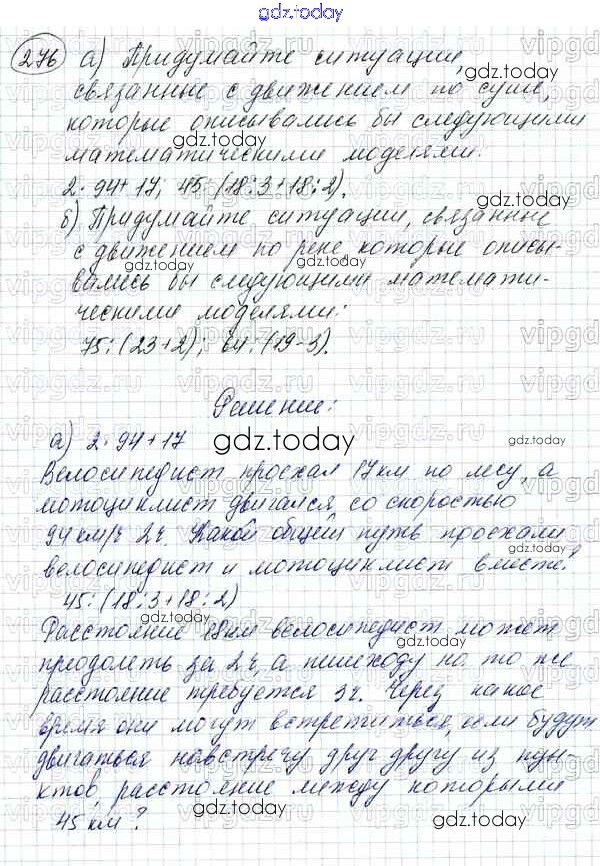 gdz.today
276 а) Придумайте ситуации,
связанные с движением по суше,
которые описывались бы следующими
математическими моделями:
2·94+17; 45:(18:3+18:2).
б) Придумайте ситуации, связанные
с движением по реке, которые описы-
вались бы следующими математи-
ческими моделями:
75:(23+2); 64:(19-3).
Решение:
а) 2·94+17
Велосипедист проехал 17км по лесу, а
мотоциклист двигался со скоростью
94км/ч 2ч. Какой общий путь проехали
велосипедист и мотоциклист вместе?
45:(18:3+18:2)
Расстояние 18км велосипедист может
преодолеть за 2ч, а пешеходу на то же
расстояние требуется 3ч. Через какое
время они могут встретиться, если будут
двигаться навстречу друг другу из пун-
ктов, расстояние между которыми
45км?